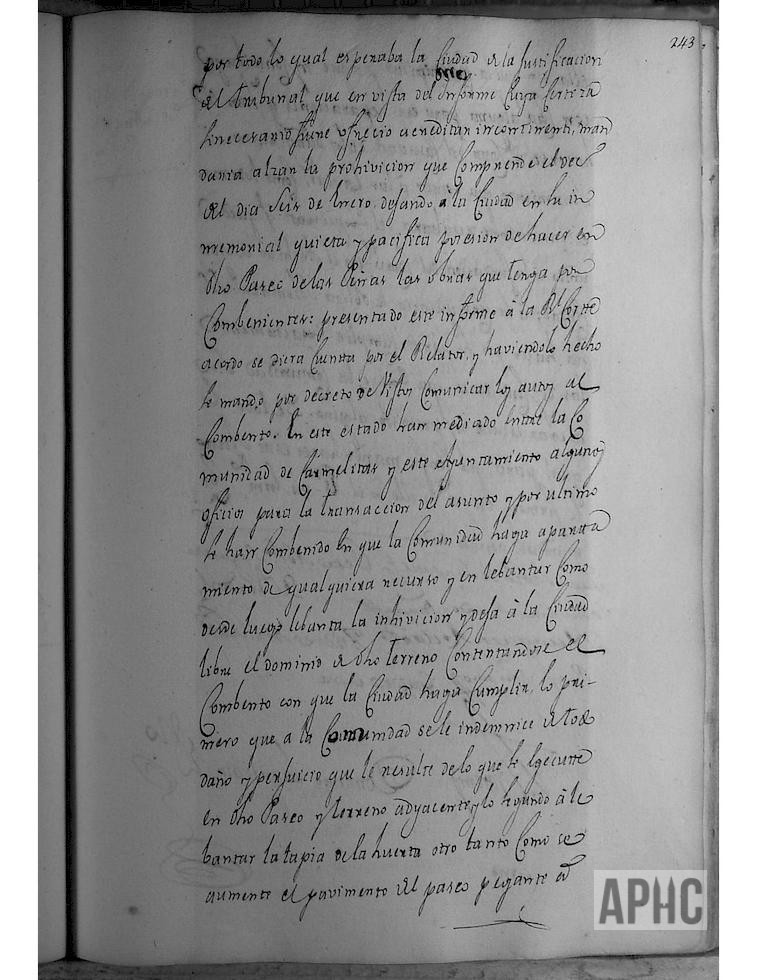 243.
por todo lo qual esperaba la Ciudad de la justificacion
del tribunal que en vista del Informe cuya certeza
si necesario fuere ofrecio acreditar incontinenti, man
daria alzar la prohivicion que Comprende el dec
del dia Seis de Enero, dejando à la Ciudad en su in
mremonial quieta y pacifica posesion de hacer en
dho Paseo de las Peñas las obras que tenga por
Combenientes: presentado este informe à la Rl Corte
acordo se diera Cuenta por el Relator, y haviendolo hecho
se mando por decreto de Vistos Comunicar los autos al
Combento. En este estado han mediado entre la Co
munidad de Carmelitas y este Ayuntamiento algunos
oficios para la transaccion del asunto y por ultimo
se han Combenido En que la Comunidad haga aparta
miento de qualquiera recurso y en lebantar Como
desde luego lebanta la inhivicion y deja à la Ciudad
libre el dominio de dho terreno Contentandose el
Combento con que la Ciudad haga Cumplir, lo pri-
mero que a la Comunidad se le indemnice de todo
daño y perjuicio que le resulte de lo que se Egecute
en dho Paseo y terreno adyacente, y lo segundo à le
bantar la tapia de la huerta otro tanto Como se
aumente el pavimento del paseo pegante à
APHC